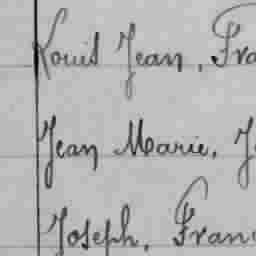 Louis Jean, Fra
Jean Marie, J
Joseph, Fran